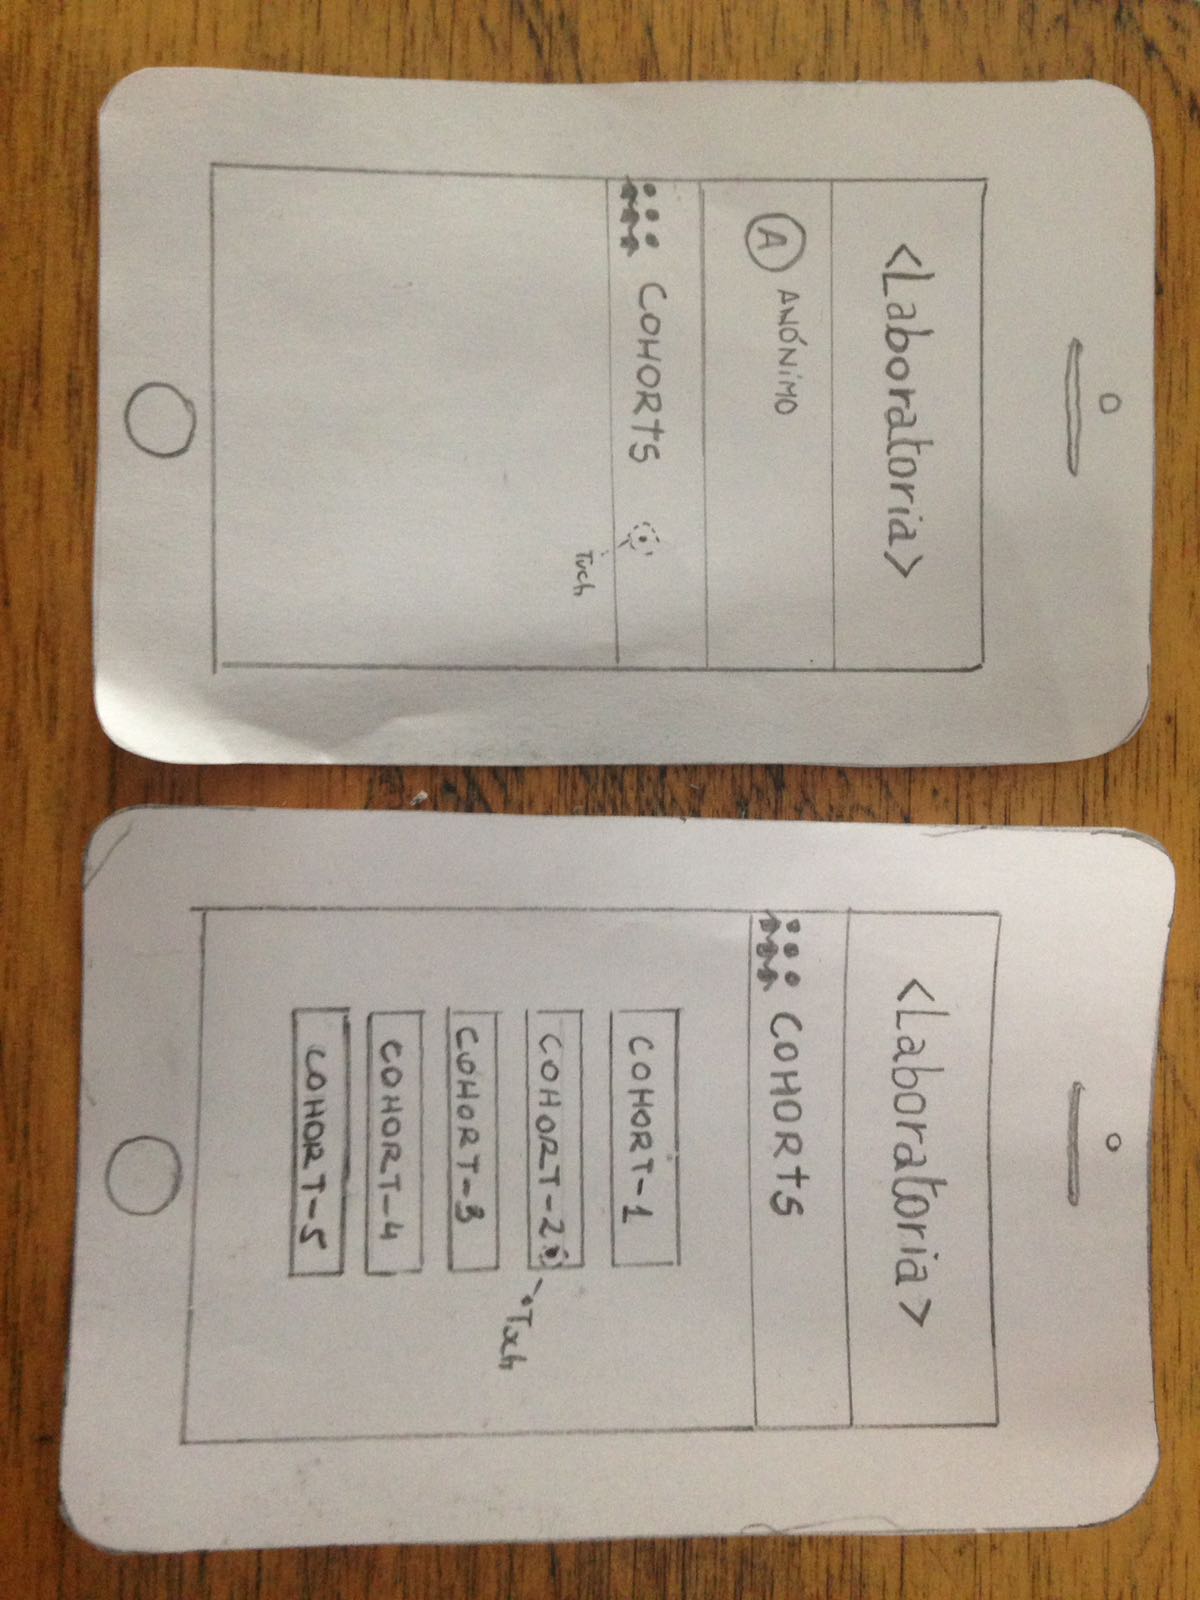 <Laboratoria>
A ANÓNIMO
COHORTS
Tuch
<Laboratoria>
COHORTS
COHORT-1
COHORT-2
Tuch
COHORT-3
COHORT-4
COHORT-5